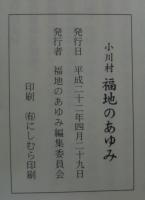 小川村 福地のあゆみ
発行日 平成二十二年四月二十九日
発行者 福地のあゆみ編集委員会
印刷 ㈲にしむら印刷